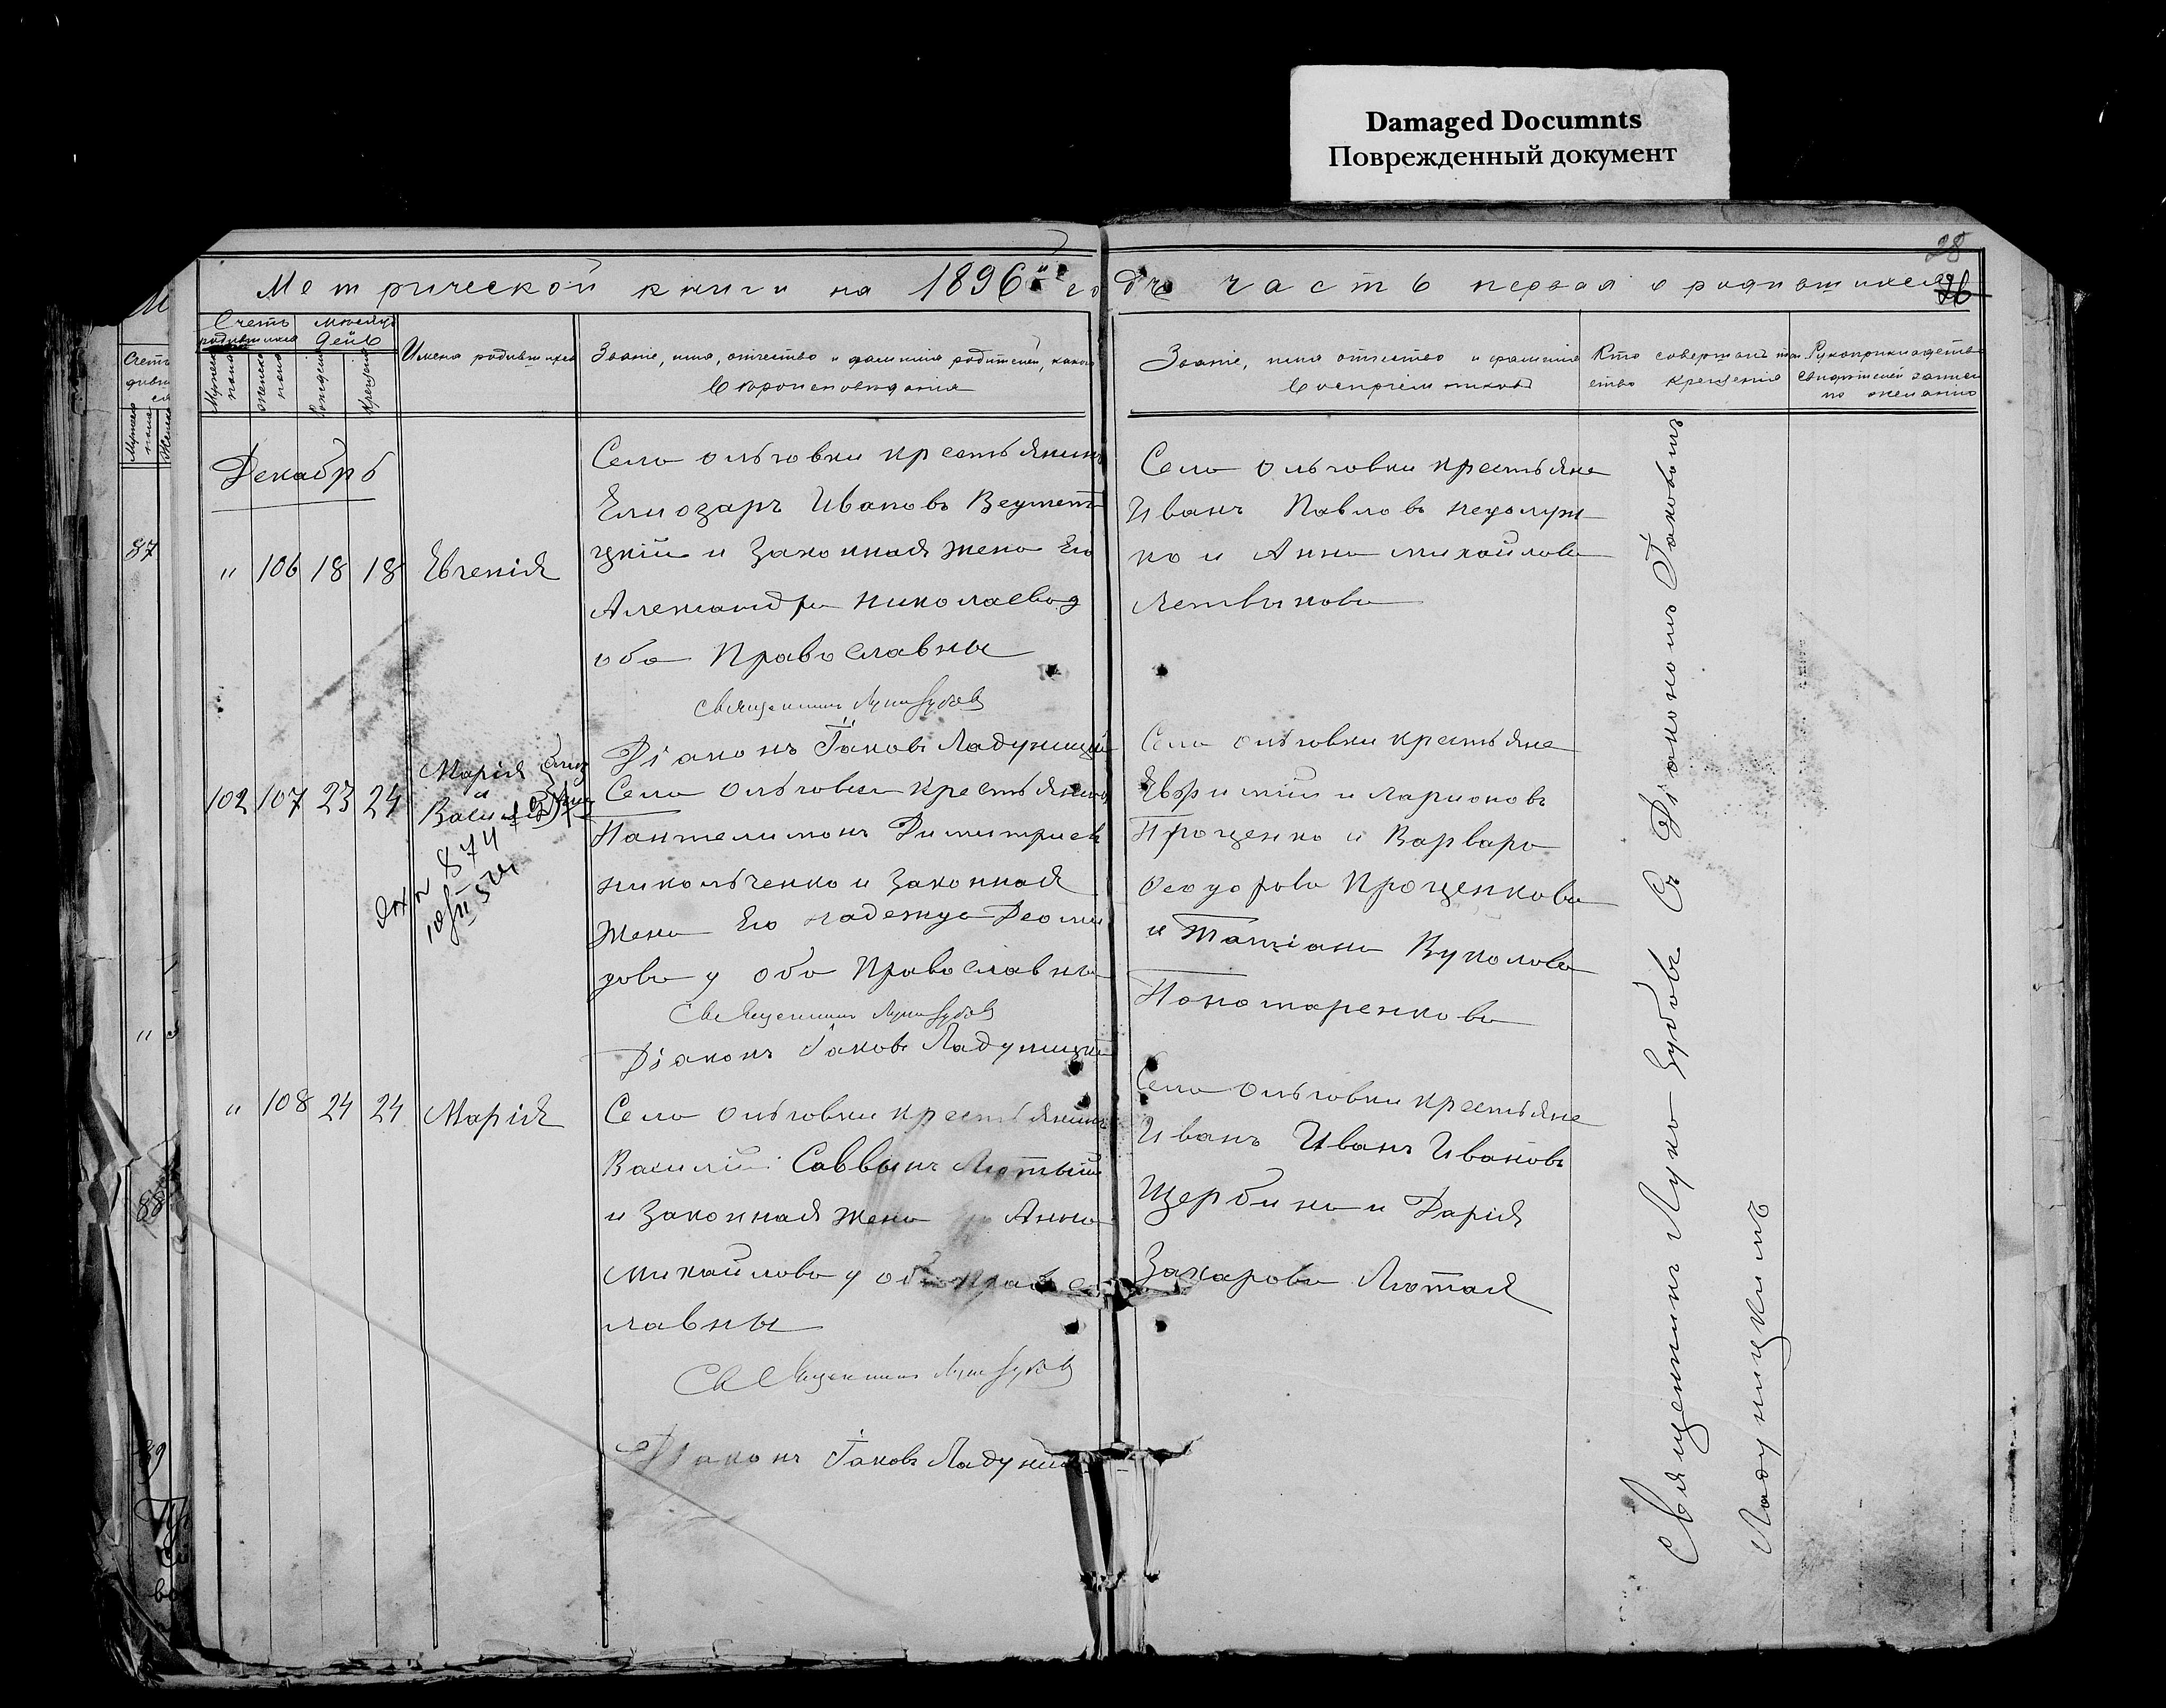 Damaged Documnts
Поврежденный документ
28
26
Метрической книги на 1896й годъ часть первая о родившихся
Счетъ родившихся
Мѣсяцъ день
Мужеска пола
Женска пола
Рожденія
Крещенія
Имена родившихся
Званіе, имя, отчество и фамилія родителей, какого
вѣроисповѣданія
Званіе, имя отчество и фамилія
воспріемниковъ
Кто совершалъ таин
ство крещенія
Рукоприкладство
свидѣтелей записи
по желанію
Декабрь
" 106 18 18 Евгенія
Село Ольговки крестьянинъ
Елиозаръ Ивановъ
и законная жена Его
Александра Николаева
оба Православны
Священникъ Лука Зубовъ
Діаконъ Іаковъ Ладунницкій
Село Ольговки крестьяне
Иванъ Павловъ Недолуж
ко и Анна Михайлова
Летвинова
102 107 23 24 Марія
и
Василій
874
Село Ольговки крестьянинъ
Пантелимонъ Димитріевъ
Никольченко и законная
жена Его Надежда Деоми
дова оба Православны
Священникъ Лука Зубовъ
Діаконъ Іаковъ Ладунницкій
Село Ольговки крестьяне
Евфимій Ларионовъ
Проценко и Варвара
Феодорова Проценкова
и Татіана Вуколова
Пономаренкова
" 108 24 24 Марія
Село Ольговки крестьянинъ
Василій Саввинъ Лютый
и законная жена Его Анна
Михайлова оба Правос
лавны
Священникъ Лука Зубовъ
Діаконъ Іаковъ Ладунниц
Село Ольговки крестьяне
Иванъ Иванъ Ивановъ
Щербина и Дарія
Захарова Лютая
Священникъ Лука Зубовъ Съ Діакономъ Іаковомъ
Ладунницкимъ
87
88
89